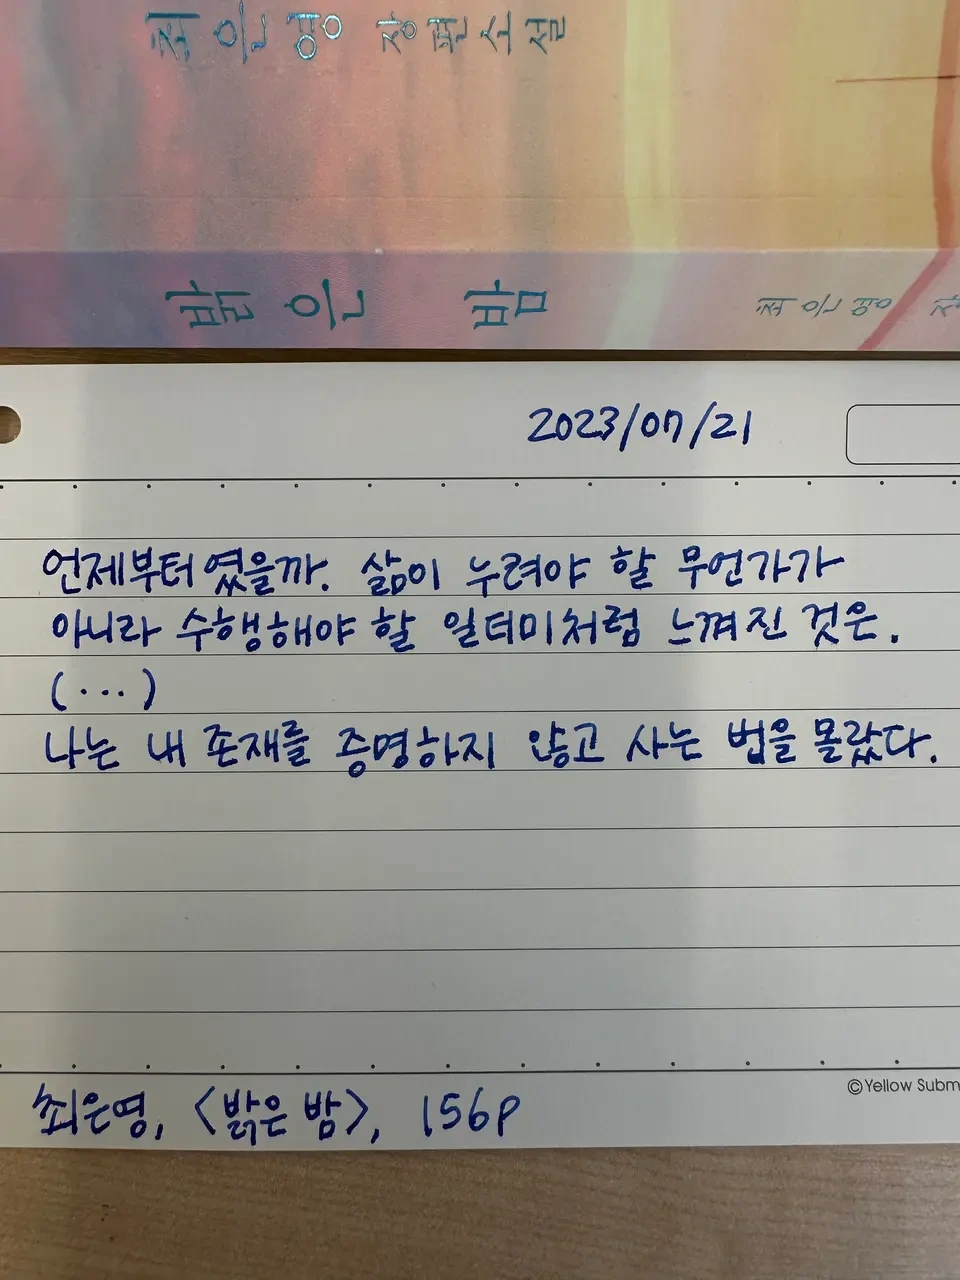 최은영 장편소설
밝은 밤
최은영 장
2023/07/21
언제부터였을까. 삶이 누려야 할 무언가가
아니라 수행해야 할 일더미처럼 느껴진 것은.
(...)
나는 내 존재를 증명하지 않고 사는 법을 몰랐다.
©Yellow Subm
최은영, <밝은 밤>, 156p